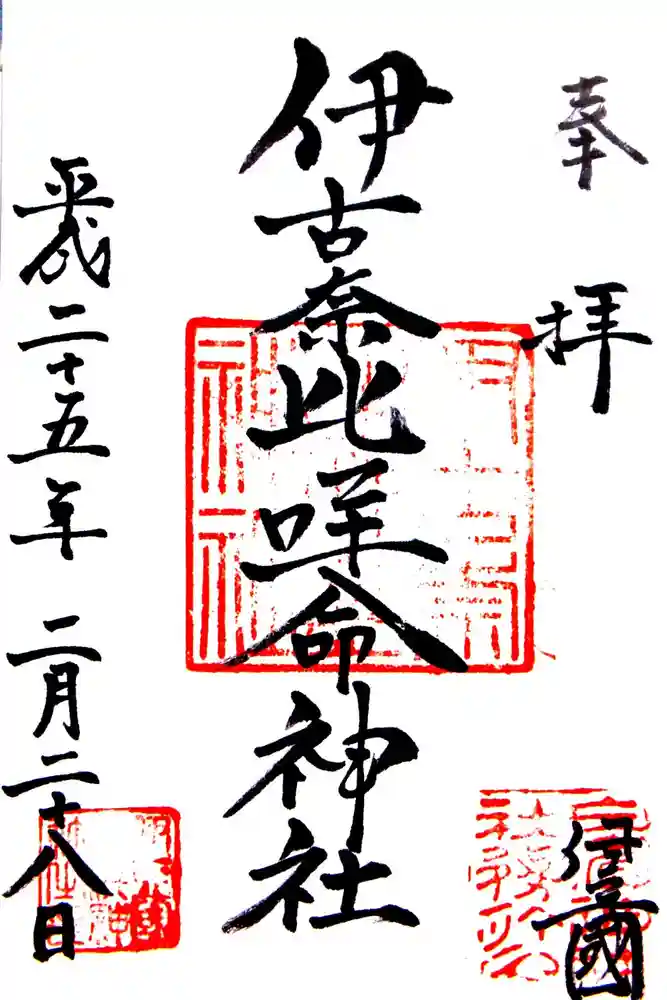 奉拝
伊豆國
伊古奈比咩命神社
平成二十五年 二月二十八日